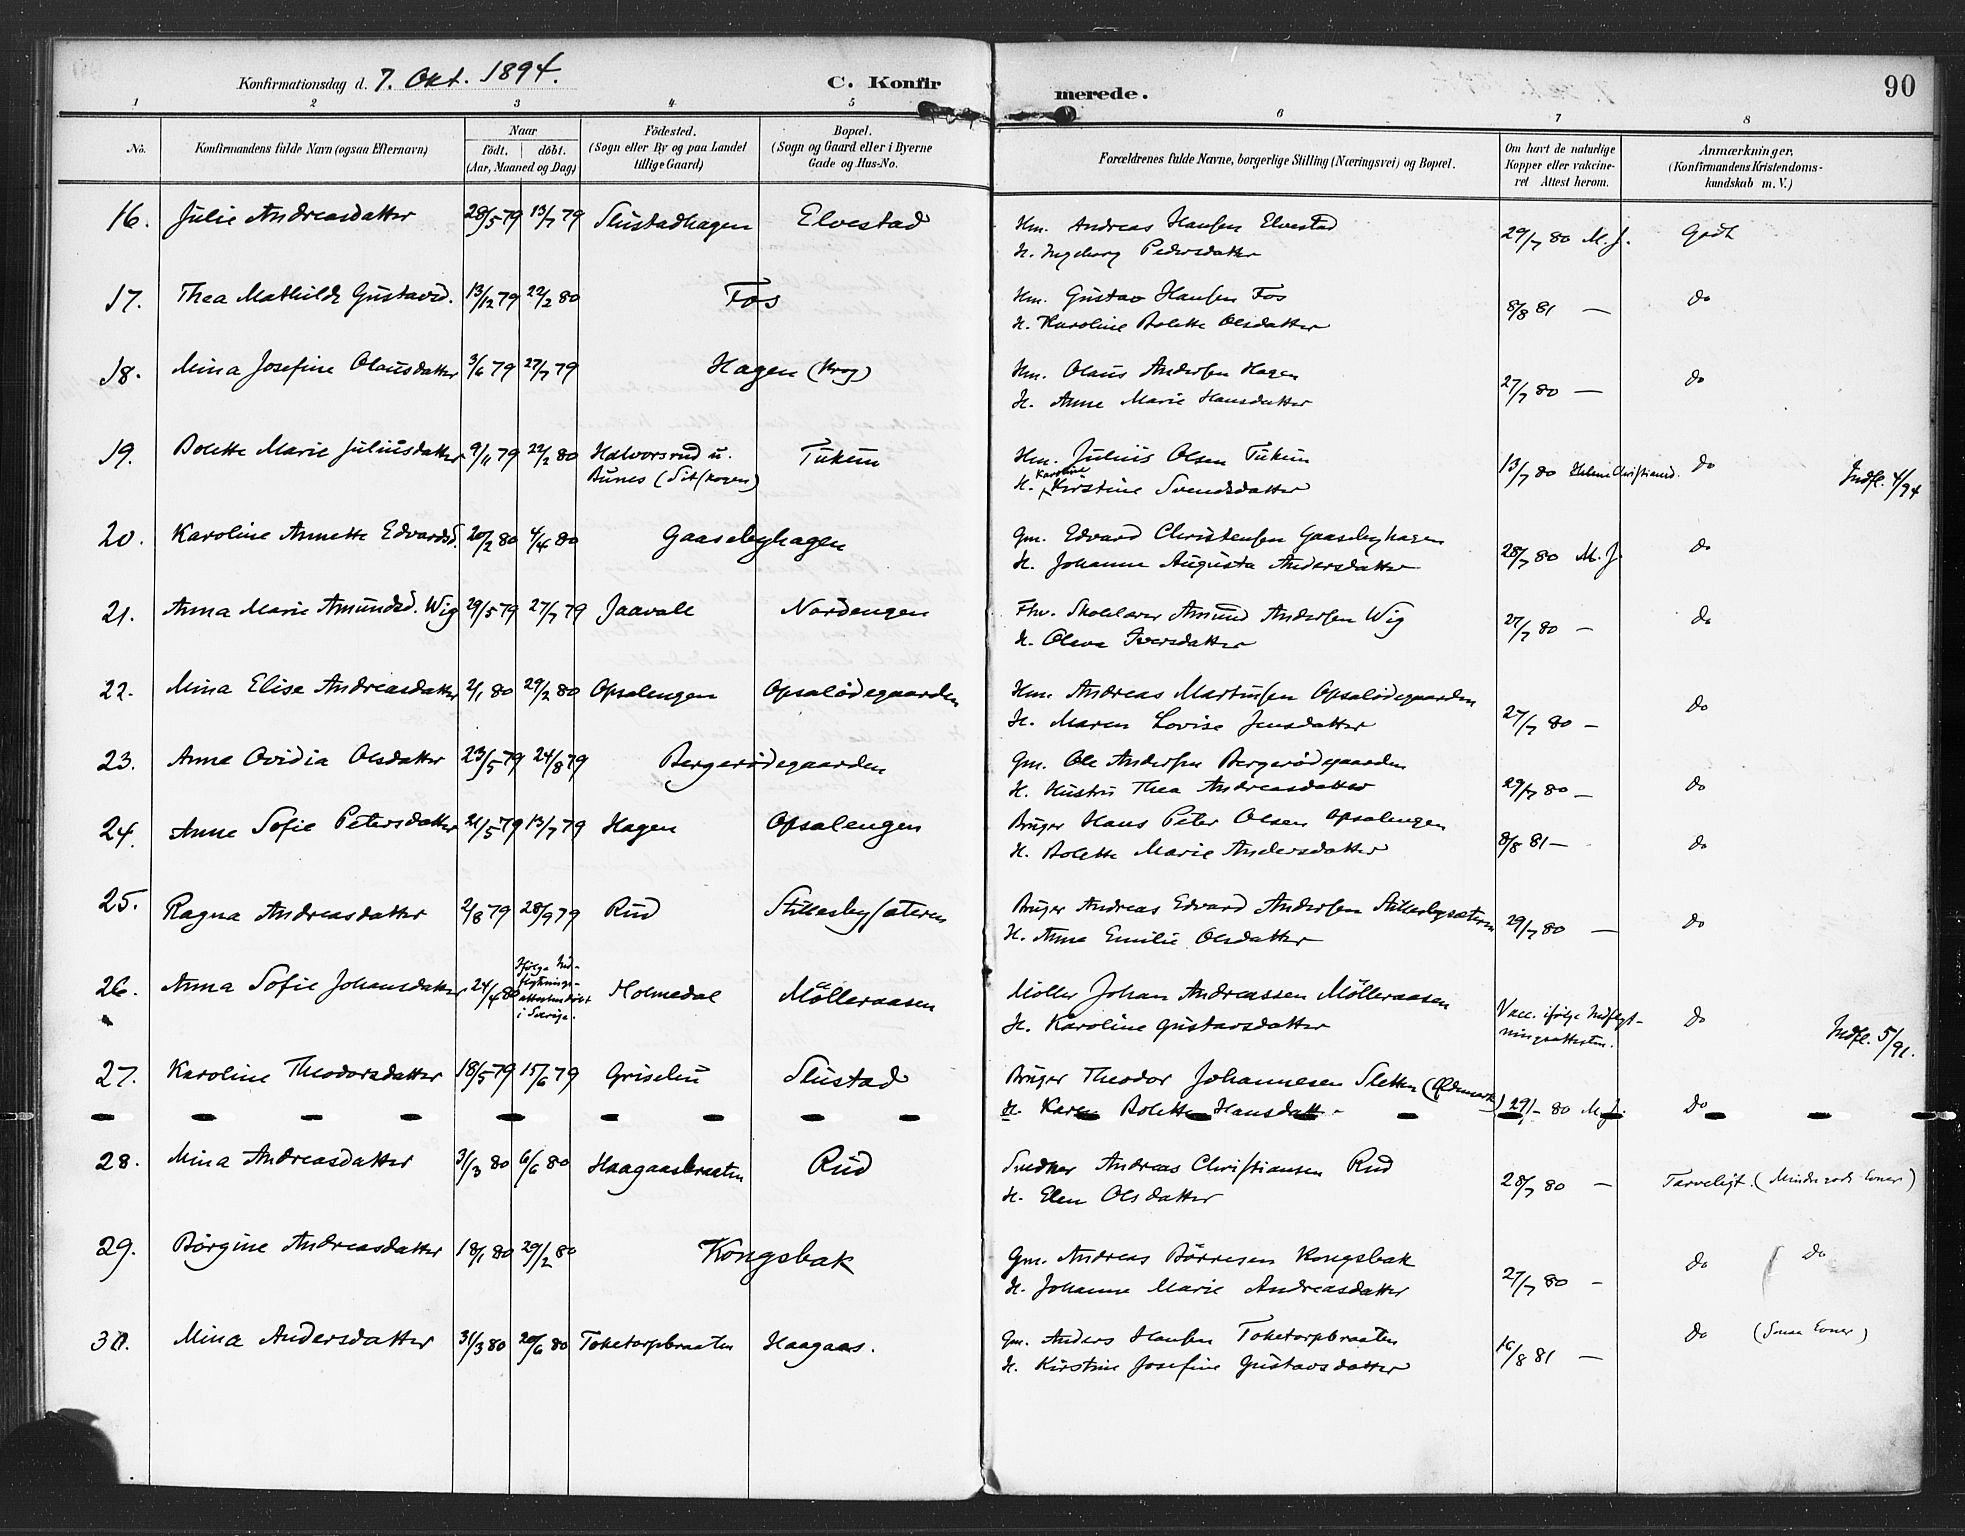 Konfirmationsdag d. 7. Okt. 1894. C. Konfirmerede. 90
1 2 3 4 5 6 7 8
No. Konfirmandens fulde Navn (ogsaa Efternavn) Naar födt. döbt. (Aar, Maaned og Dag) Födested. (Sogn eller By og paa Landet tillige Gaard) Bopæl. (Sogn og Gaard eller i Byerne Gade og Hus-No. Forældrenes fulde Navne, borgerlige Stilling (Næringsvei) og Bopæl. Om havt de naturlige Kopper eller vakcineret Attest herom. Anmærkninger. (Konfirmandens Kristendomskundskab m. V.)
16. Julie Andreasdatter 28/5 79 13/7 79 Slustadhagen Elvestad Hm. Andreas Hansen Elvestad 29/7 80 M. J. Godt
H. Ingeborg Pedersdatter
17. Thea Mathilde Gustavsd. 13/12 79 22/2 80 Fos Hm. Gustav Hansen Fos 8/8 81 — do
H. Karoline Bolette Olsdatter
18. Mina Josefine Olausdatter 3/6 79 27/7 79 Hagen (Krog) Hm. Olaus Andersen Hagen 27/7 80 — do
H. Anne Marie Hansdatter
19. Bolette Marie Juliusdatter 9/11 79 22/2 80 Halvorsrud u. Bunes (Sitskogen) Tukun Hm. Julius Olsen Tukun 13/7 80 Helene Christiansd. do Indfl. 4/94
H. Karoline Kirstine Svendsdatter
20. Karoline Annette Edvardsd. 20/2 80 4/4 80 Gaasebyhagen Gm. Edvard Christensen Gaasebyhagen 28/7 80 M. J. do
H. Johanne Augusta Andersdatter
21. Anna Marie Amundsd. Wig 29/5 79 27/7 79 Jaavall Nordengen Fhv. Skolelærer Amund Andersen Wig 27/7 80 — do
H. Oleva Iversdatter
22. Mina Elise Andreasdatter 2/1 80 29/2 80 Opsalengen Opsalödegaarden Hm. Andreas Martinsen Opsalödegaarden 27/7 80 — do
H. Maren Lovise Jensdatter
23. Anne Ovidia Olsdatter 23/5 79 24/8 79 Bergerödegaarden Gm. Ole Andersen Bergerödegaarden 29/7 80 — do
H. Hustru Thea Andreasdatter
24. Anne Sofie Petersdatter 21/5 79 13/7 79 Hagen Opsalengen Bruger Hans Peter Olsen Opsalengen 8/8 81 — do
H. Bolette Marie Andersdatter
25. Ragna Andreasdatter 2/8 79 28/9 79 Rud Stikkesbysæteren Bruger Andreas Edvard Andersen Stikkesbysæteren 29/7 80 — do
H. Anne Emilie Olsdatter
26. Anna Sofie Johansdatter 24/4 80 Ifølge Indflytningsattesten döbt i Sverige. Holmedal Mölleraasen Möller Johan Andreassen Mölleraasen Vacc. ifölge Indflytningsattesten. do Indfl. 5/91.
H. Karoline Gustavsdatter
27. Karoline Theodorsdatter 18/5 79 15/6 79 Griselu Slustad Bruger Theodor Johannesen Sletten (Ödemark) 29/7 80 M. J. do
H. Karen Bolette Hansdatt.
28. Mina Andreasdatter 31/3 80 6/6 80 Haagaasbraaten Rud Snedker Andreas Christiansen Rud 28/7 80 — Tarveligt. (Mindre gode Evner)
H. Elen Olsdatter
29. Börgine Andreasdatter 18/1 80 29/2 80 Kongsbak Gm. Andreas Börresen Kongsbak 27/7 80 — do do
H. Johanne Marie Andreasdatter
30. Mina Andersdatter 31/3 80 20/6 80 Toketorpbraaten Haagaas. Gm. Anders Hansen Toketorpbraaten 16/8 81 — do (Smaa Evner)
H. Kirstine Josefine Gustavsdatter